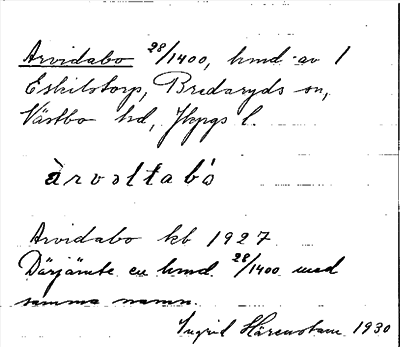 Arvidabo 28/1400, hmd av 1
Eskilstorp, Bredaryds sn,
Västbo hd, Jkpgs l.
Arvidabo kb 1927
Därjämte en hmd. 28/1400 med
samma namn.
Ingrid Härenstam 1930